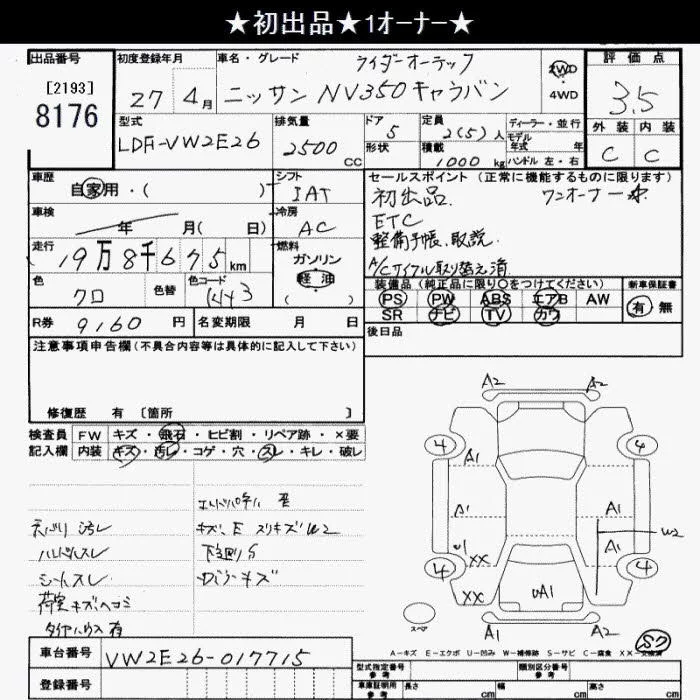 ★初出品★1ｵｰﾅｰ★
出品番号
[2193]
8176
初度登録年月
27年 4月
車名・グレード
ライダーオーテック
ニッサン NV350キャラバン
2WD
4WD
評価点
3.5
外装 内装
C C
型式
LDF-VW2E26
排気量
2500 CC
ドア 5
形状
定員 2(5)人
積載 1000 kg
ディーラー・並行
モデル年式 年
ハンドル 左・右
車歴
自家用・( )
シフト
IAT
車検
年 月( 日)
冷房
AC
走行
19万8千675km
燃料
ガソリン
軽油
( )
色
クロ
色替
色コード
R券 9,160 円
名変期限 月 日
セールスポイント (正常に機能するものに限ります)
初出品. ワンオーナー☆
ETC
整備手帳、取説.
A/Cサイクル取り替え済
装備品(純正品に限り○をつけてください)
PS PW ABS エアB AW
SR ナビ TV カワ
新車保証書
有・無
後日品
注意事項申告欄(不具合内容等は具体的に記入して下さい)
修復歴 有 〔箇所 〕
検査員記入欄
FW キズ・飛石・ヒビ割・リペア跡・×要
内装 キズ・汚レ・コゲ・穴・スレ・キレ・破レ
天バリ 汚レ
ハンドルスレ
シートスレ
荷室キズ、ヘコミ
タイヤハウス有
キズ、E スリキズW2
下廻りS
A2 A2
4 4
A1
A1 A1
W2
U1 XX A1
4 4
XX UA1
A1 A2
スペア
S7
A－キズ E－エクボ U－凹み W－補修跡 S－サビ C－腐食 XX－交換済
車台番号 VW2E26-017715
登録番号
型式指定番号
類別区分番号
車庫証明用参考
長さ cm 幅 cm 高さ cm